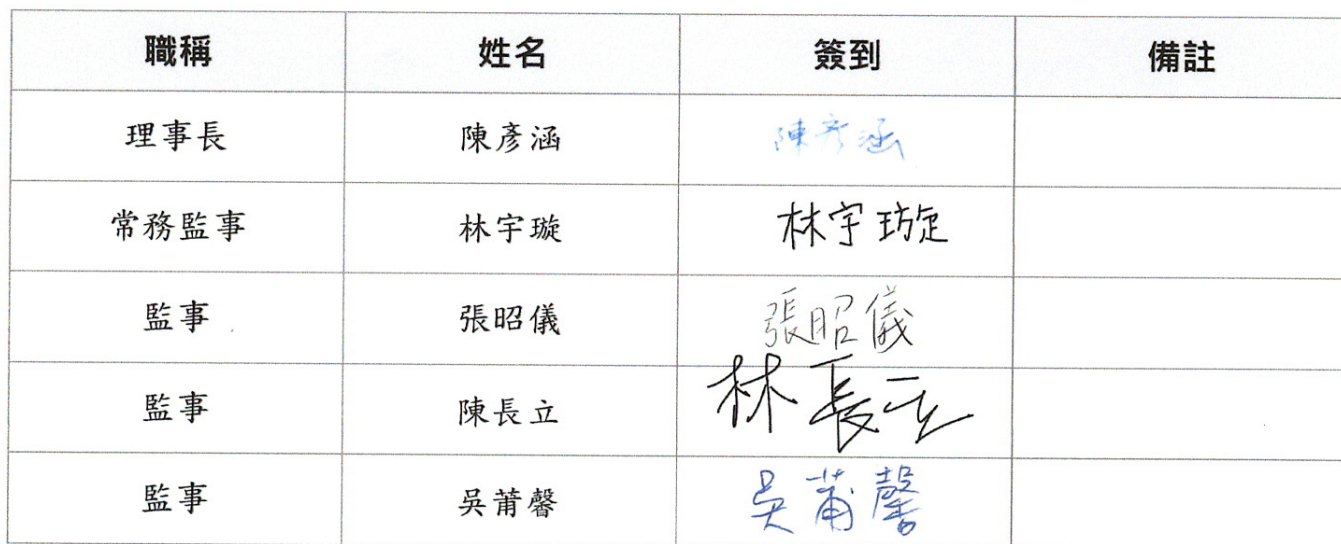 職稱 姓名 簽到 備註
理事長 陳彥涵 陳彥涵
常務監事 林宇璇 林宇璇
監事 張昭儀 張昭儀
監事 陳長立 林長立
監事 吳莆馨 吳莆馨